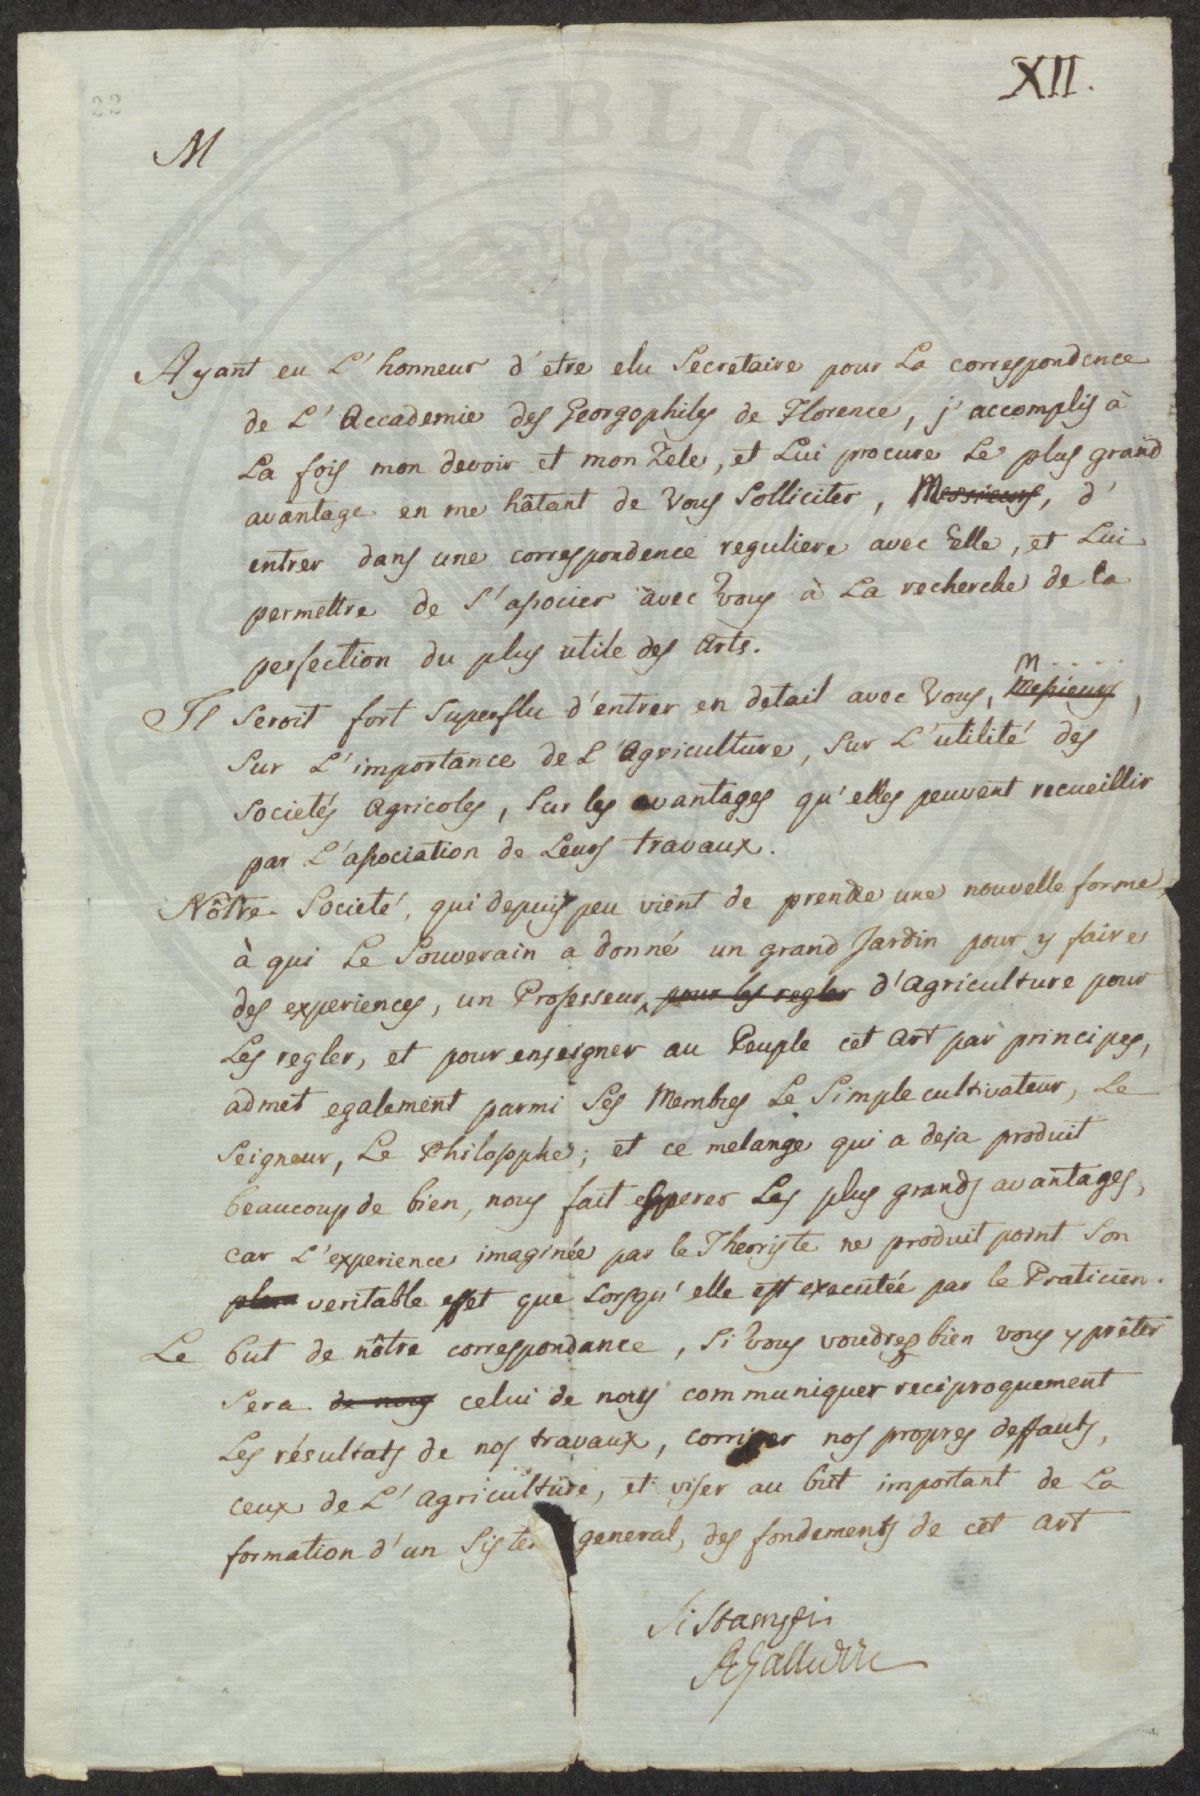 XII.
22
M
Ayant eu L'honneur d'etre elu Secretaire pour La correspondence
de L'Accademie des Georgophiles de Florence, j'accomplis à
La fois mon devoir et mon Zele, et Lui procure Le plus grand
avantage en me hâtant de Vous Solliciter, Messieurs, d'
entrer dans une correspondence reguliere avec Elle, et Lui
permettre de S'associer avec Vous à La recherche de la
perfection du plus utile des Arts.
M.....
Il Seroit fort Superflu d'entrer en detail avec Vous, Messieurs,
Sur L'importance de L'Agriculture, Sur L'utilité des
Societés Agricoles, Sur les avantages qu'elles peuvent recueillir
par L'association de Leurs travaux.
Nôtre Societé, qui depuis peu vient de prendre une nouvelle forme,
à qui Le Souverain a donné un grand Jardin pour y faire
des experiences, un Professeur, pour les regler d'Agriculture pour
Les regler, et pour enseigner au Peuple cet Art par principes,
admet egalement parmi Ses Membres Le Simple cultivateur, Le
Seigneur, Le Philosophe; et ce melange qui a deja produit
beaucoup de bien, nous fait esperer Les plus grands avantages,
car L'experience imaginée par le Theoriste ne produit point Son
plein veritable effet que Lorsqu'elle est executée par le Praticien.
Le but de nôtre correspondance, Si Vous voudres bien vous y prêter
Sera de nous celui de nous communiquer reciproquement
Les résultats de nos travaux, corriger nos propres deffauts,
ceux de L'Agriculture, et viser au but important de La
formation d'un Siste general, des fondements de cet Art
Si Stampi